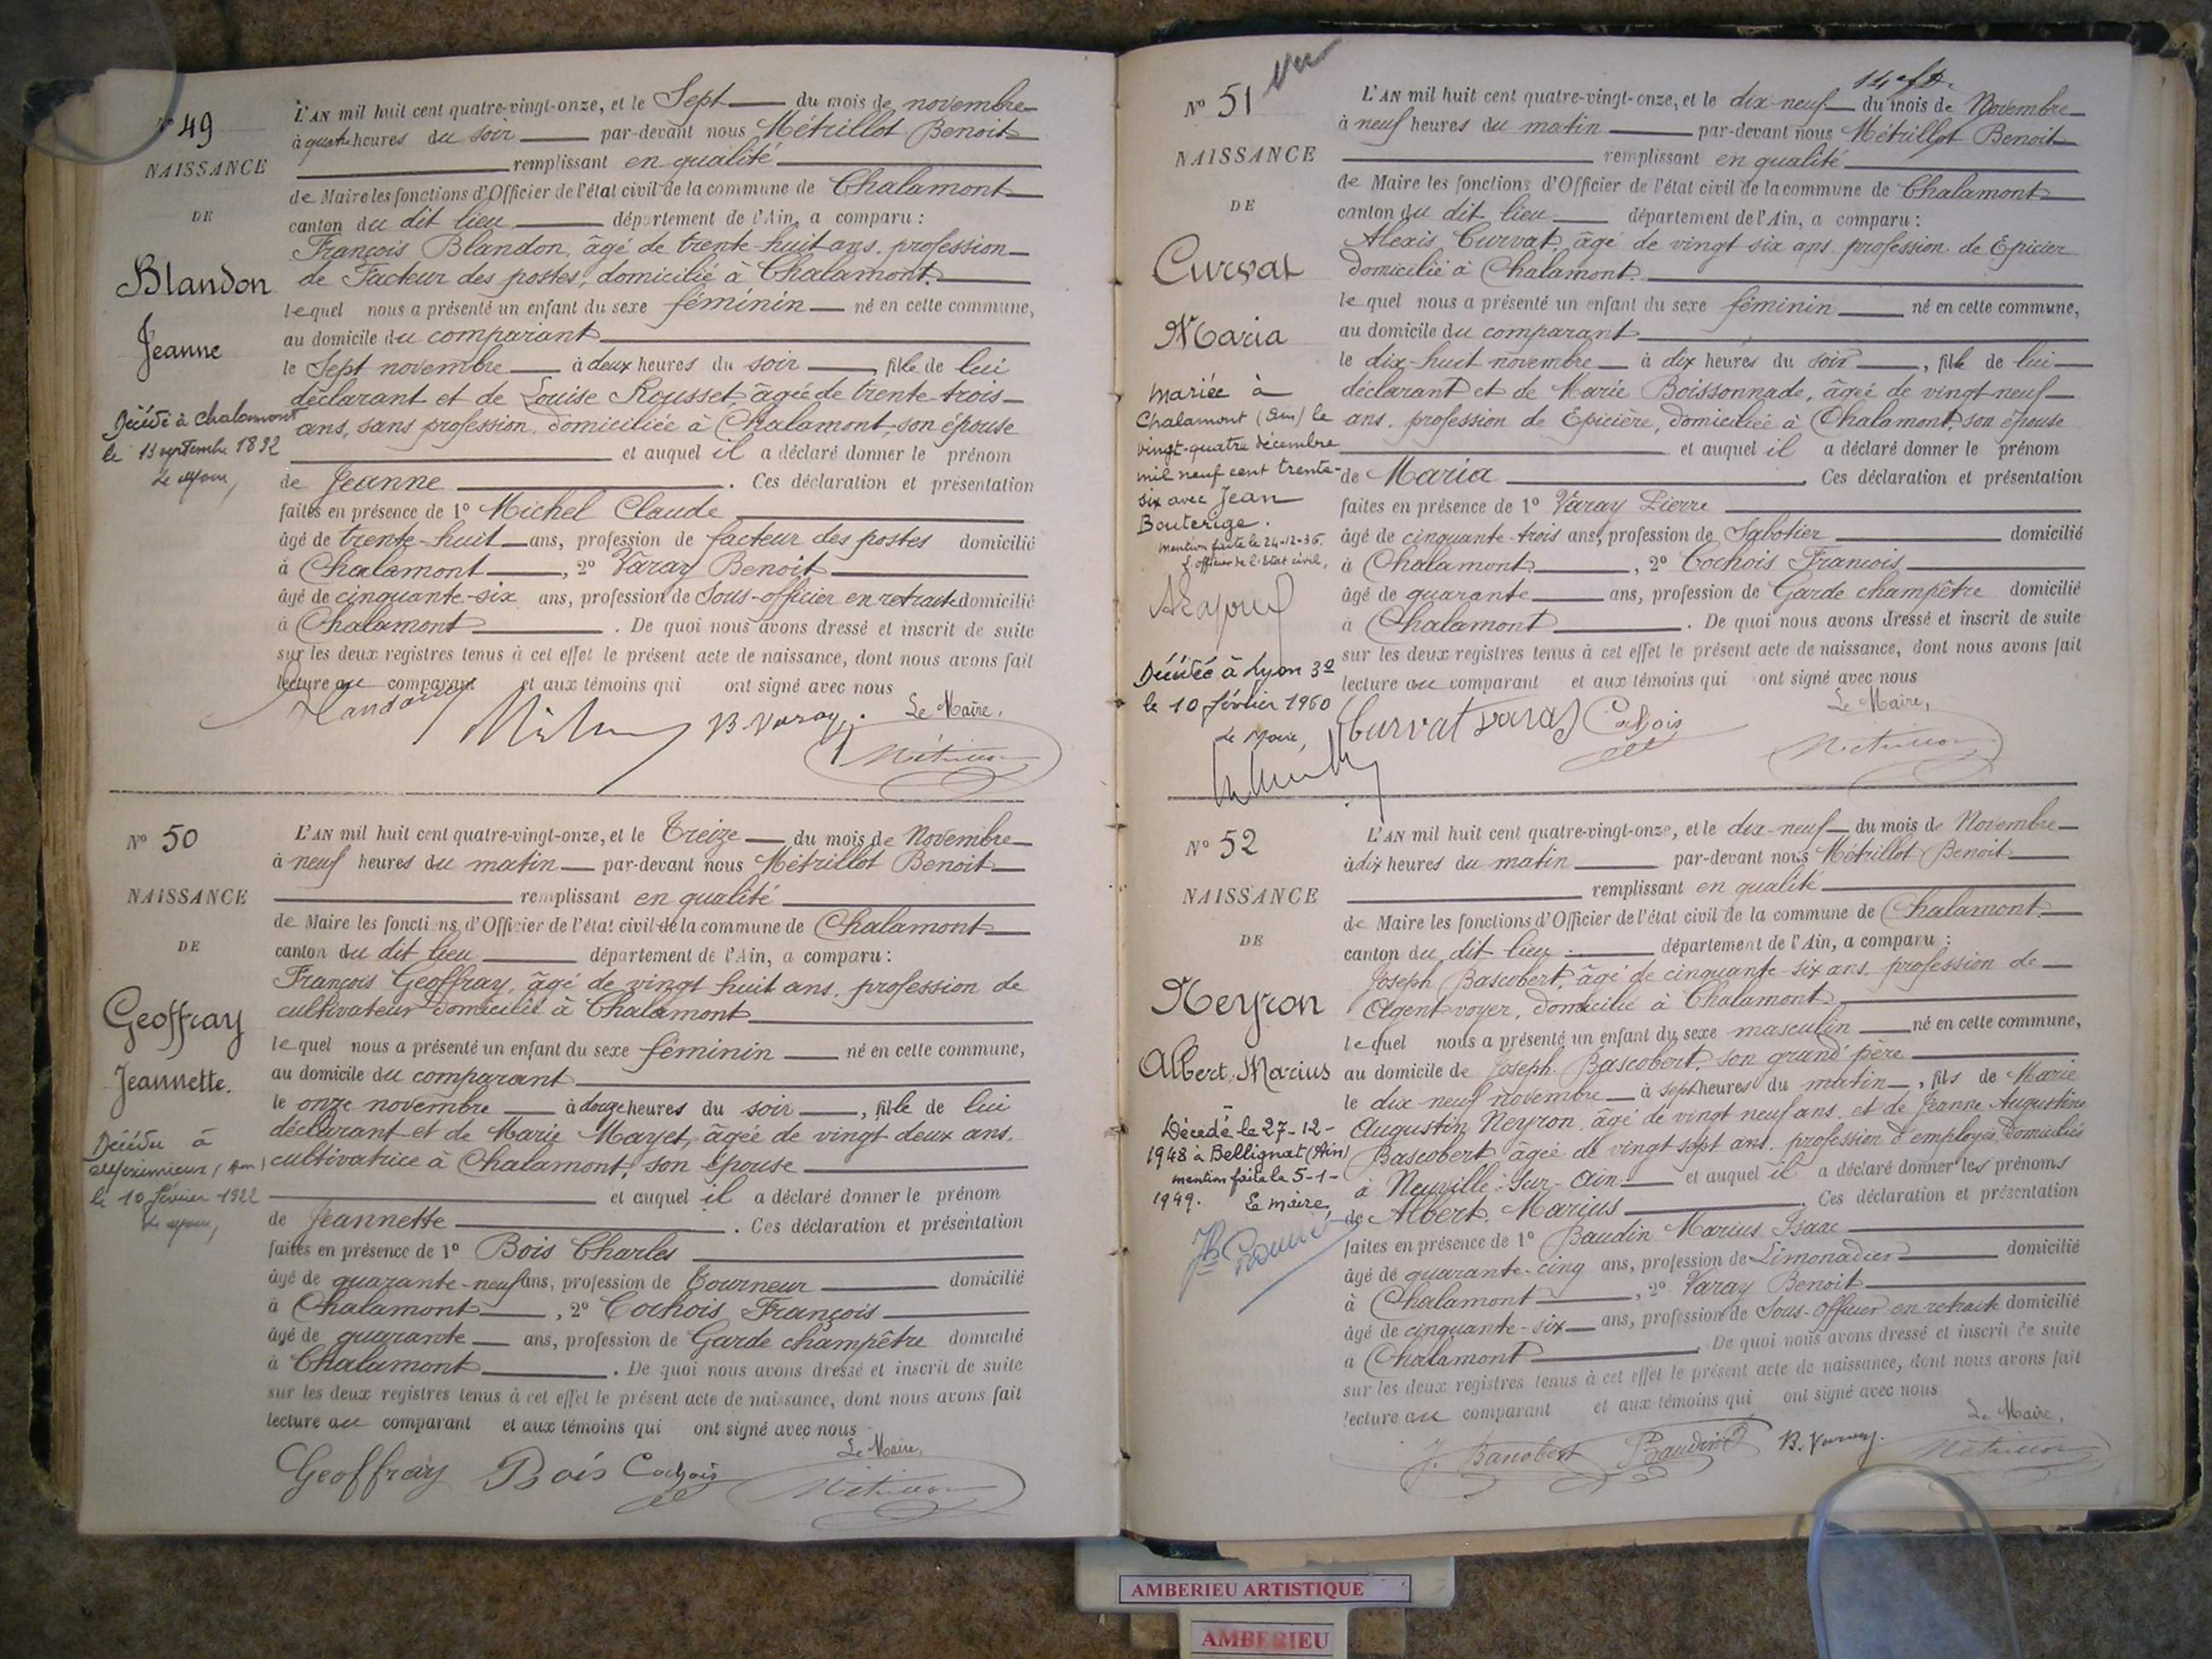 N° 49
NAISSANCE
DE
Blandon
Jeanne
Décédé à Chalamont
le 13 septembre 1892
Le Maire,
L'AN mil huit cent quatre-vingt-onze, et le Sept du mois de novembre
à quatre heures du soir par-devant nous Métrillot Benoit
remplissant en qualité
de Maire les fonctions d'Officier de l'état civil de la commune de Chalamont
canton du dit lieu département de l'Ain, a comparu :
François Blandon, âgé de trente-huit ans, profession
de Facteur des postes, domicilié à Chalamont.
lequel nous a présenté un enfant du sexe féminin né en cette commune,
au domicile du comparant
le Sept novembre à deux heures du soir, fille de lui
déclarant et de Louise Rousset, âgée de trente-trois
ans, sans profession, domiciliée à Chalamont, son épouse
et auquel il a déclaré donner le prénom
de Jeanne. Ces déclaration et présentation
faites en présence de 1° Michel Claude
âgé de trente-huit ans, profession de facteur des postes domicilié
à Chalamont, 2° Varay Benoit
âgé de cinquante-six ans, profession de Sous-officier en retraite domicilié
à Chalamont. De quoi nous avons dressé et inscrit de suite
sur les deux registres tenus à cet effet le présent acte de naissance, dont nous avons fait
lecture au comparant et aux témoins qui ont signé avec nous
Le Maire,
B. Varay
N° 50
NAISSANCE
DE
Geoffray
Jeannette.
Décédée à
Meximieux (Ain)
le 10 février 1922
Le Maire,
L'AN mil huit cent quatre-vingt-onze, et le Treize du mois de Novembre
à neuf heures du matin par-devant nous Métrillot Benoit
remplissant en qualité
de Maire les fonctions d'Officier de l'état civil de la commune de Chalamont
canton du dit lieu département de l'Ain, a comparu :
François Geoffray, âgé de vingt huit ans, profession de
cultivateur domicilié à Chalamont
lequel nous a présenté un enfant du sexe féminin né en cette commune,
au domicile du comparant
le onze novembre à douze heures du soir, fille de lui
déclarant et de Marie Mayet, âgée de vingt deux ans
cultivatrice à Chalamont, son épouse
et auquel il a déclaré donner le prénom
de Jeannette. Ces déclaration et présentation
faites en présence de 1° Bois Charles
âgé de quarante-neuf ans, profession de Tourneur domicilié
à Chalamont, 2° Cochois François
âgé de quarante ans, profession de Garde champêtre domicilié
à Chalamont. De quoi nous avons dressé et inscrit de suite
sur les deux registres tenus à cet effet le présent acte de naissance, dont nous avons fait
lecture au comparant et aux témoins qui ont signé avec nous
Le Maire,
Geoffray Bois Cochois
N° 51
NAISSANCE
DE
Curvat
Maria
mariée à
Chalamont (Ain) le
vingt-quatre décembre
mil neuf cent trente-
six avec Jean
Bouterige.
Mention faite le 24-12-36.
L'officier de l'Etat civil,
Décédée à Lyon 3e
le 10 février 1960
Le Maire,
L'AN mil huit cent quatre-vingt-onze, et le dix-neuf du mois de Novembre
à neuf heures du matin par-devant nous Métrillot Benoit
remplissant en qualité
de Maire les fonctions d'Officier de l'état civil de la commune de Chalamont
canton du dit lieu département de l'Ain, a comparu :
Alexis Curvat, âgé de vingt six ans, profession de Epicier
domicilié à Chalamont.
lequel nous a présenté un enfant du sexe féminin né en cette commune,
au domicile du comparant
le dix-huit novembre à dix heures du soir, fille de lui
déclarant et de Marie Boissonnade, âgée de vingt-neuf
ans, profession de Epicière, domiciliée à Chalamont, son épouse
et auquel il a déclaré donner le prénom
de Maria. Ces déclaration et présentation
faites en présence de 1° Varay Pierre
âgé de cinquante-trois ans, profession de Sabotier domicilié
à Chalamont, 2° Cochois François
âgé de quarante ans, profession de Garde champêtre domicilié
à Chalamont. De quoi nous avons dressé et inscrit de suite
sur les deux registres tenus à cet effet le présent acte de naissance, dont nous avons fait
lecture au comparant et aux témoins qui ont signé avec nous
Le Maire,
Curvat Varay Cochois
N° 52
NAISSANCE
DE
Neyron
Albert, Marius
Décédé le 27-12-
1948 à Bellignat (Ain)
mention faite le 5-1-
1949. Le maire,
L'AN mil huit cent quatre-vingt-onze, et le dix-neuf du mois de Novembre
à dix heures du matin par-devant nous Métrillot Benoit
remplissant en qualité
de Maire les fonctions d'Officier de l'état civil de la commune de Chalamont
canton du dit lieu département de l'Ain, a comparu :
Joseph Bascobert, âgé de cinquante-six ans, profession de
Agent voyer, domicilié à Chalamont
lequel nous a présenté un enfant du sexe masculin né en cette commune,
au domicile de Joseph Bascobert, son grand père
le dix neuf novembre à sept heures du matin, fils de Marie
Augustin Neyron, âgé de vingt neuf ans et de Jeanne Augustine
Bascobert âgée de vingt sept ans, profession d'employés, domiciliés
à Neuville-sur-Ain et auquel il a déclaré donner les prénoms
de Albert, Marius. Ces déclaration et présentation
faites en présence de 1° Baudin Marius Isaac
âgé de quarante-cinq ans, profession de Limonadier domicilié
à Chalamont, 2° Varay Benoit
âgé de cinquante-six ans, profession de Sous-Officier en retraite domicilié
à Chalamont. De quoi nous avons dressé et inscrit de suite
sur les deux registres tenus à cet effet le présent acte de naissance, dont nous avons fait
lecture au comparant et aux témoins qui ont signé avec nous
Le Maire,
J. Bascobert Baudin B. Varay
AMBERIEU ARTISTIQUE
AMBERIEU